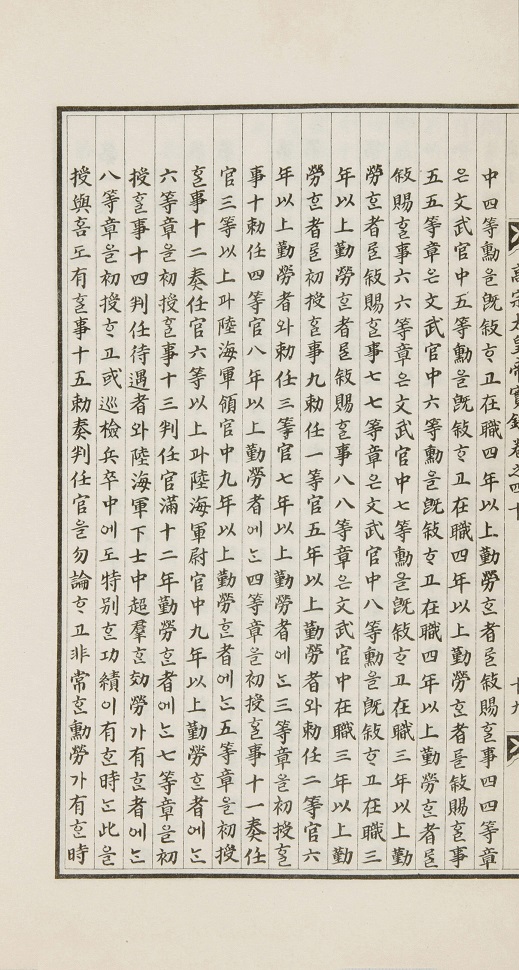 高宗太皇帝實錄卷之四十
十九
中四等勳을旣敍ᄒᆞ고在職四年以上勤勞ᄒᆞᆫ者를敍賜ᄒᆞᆯ事四四等章
은文武官中五等勳을旣敍ᄒᆞ고在職四年以上勤勞ᄒᆞᆫ者를敍賜ᄒᆞᆯ事
五五等章은文武官中六等勳을旣敍ᄒᆞ고在職四年以上勤勞ᄒᆞᆫ者를
敍賜ᄒᆞᆯ事六六等章은文武官中七等勳을旣敍ᄒᆞ고在職三年以上勤
勞ᄒᆞᆫ者를敍賜ᄒᆞᆯ事七七等章은文武官中八等勳을旣敍ᄒᆞ고在職三
年以上勤勞ᄒᆞᆫ者를敍賜ᄒᆞᆯ事八八等章은文武官中在職三年以上勤
勞ᄒᆞᆫ者를初授ᄒᆞᆯ事九勅任一等官五年以上勤勞者와勅任二等官六
年以上勤勞者와勅任三等官七年以上勤勞者에ᄂᆞᆫ三等章을初授ᄒᆞᆯ
事十勅任四等官八年以上勤勞者에ᄂᆞᆫ四等章을初授ᄒᆞᆯ事十一奏任
官三等以上과陸海軍領官中九年以上勤勞ᄒᆞᆫ者에ᄂᆞᆫ五等章을初授
ᄒᆞᆯ事十二奏任官六等以上과陸海軍尉官中九年以上勤勞ᄒᆞᆫ者에ᄂᆞᆫ
六等章을初授ᄒᆞᆯ事十三判任官滿十二年勤勞ᄒᆞᆫ者에ᄂᆞᆫ七等章을初
授ᄒᆞᆯ事十四判任待遇者와陸海軍下士中超羣ᄒᆞᆫ効勞가有ᄒᆞᆫ者에ᄂᆞᆫ
八等章을初授ᄒᆞ고或巡檢兵卒中에도特別ᄒᆞᆫ功績이有ᄒᆞᆫ時ᄂᆞᆫ此을
授與홈도有ᄒᆞᆯ事十五勅奏判任官을勿論ᄒᆞ고非常ᄒᆞᆫ勳勞가有ᄒᆞᆫ時